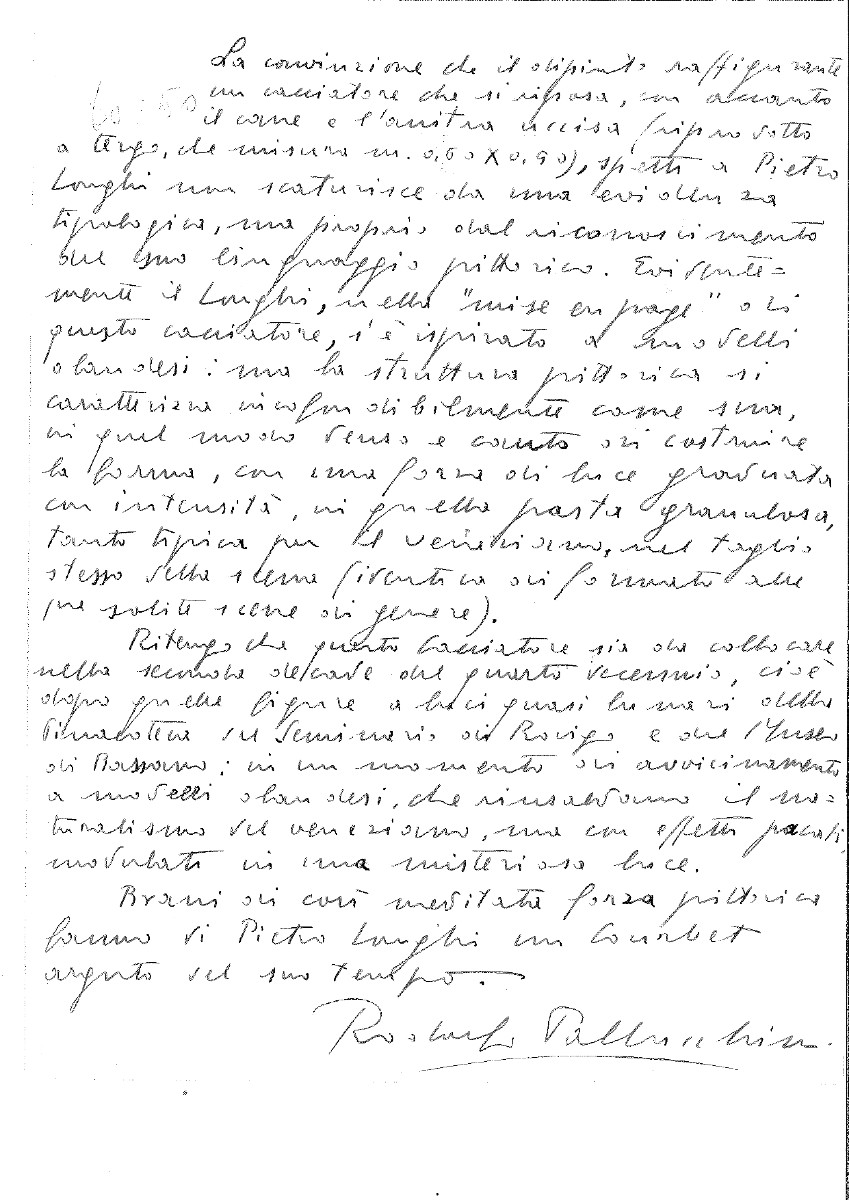 La convinzione che il dipinto raffigurante
un cacciatore che si riposa, con accanto
60 : 50
il cane e l'anitra uccisa (riprodotto
a tergo, che misura m. 0,60 x 0,90), spetti a Pietro
Longhi non scaturisce da una evidenza
tipologica, ma proprio dal riconoscimento
del suo linguaggio pittorico. Evidente=
mente il Longhi, nella "mise en page" di
questo cacciatore, s'è ispirato a modelli
olandesi: ma la struttura pittorica si
caratterizza inconfondibilmente come sua,
in quel modo denso e cauto di costruire
la forma, con una forza di luce graduata
con intensità, in quella pasta granulosa,
tanto tipica per il veneziano, nel taglio
stesso della scena (identica di formato alle
sue solite scene di genere).
Ritengo che questo Cacciatore sia da collocare
nella seconda decade del quarto decennio, cioè
dopo quelle figure a luci quasi lunari della
Pinacoteca del Seminario di Rovigo e del Museo
di Bassano; in un momento di avvicinamento
a modelli olandesi, che rinsaldano il na=
turalismo del veneziano, ma con effetti pacati,
modulati in una misteriosa luce.
Brani di così meditata forza pittorica
fanno di Pietro Longhi un Courbet
arguto del suo tempo.
Rodolfo Pallucchini.